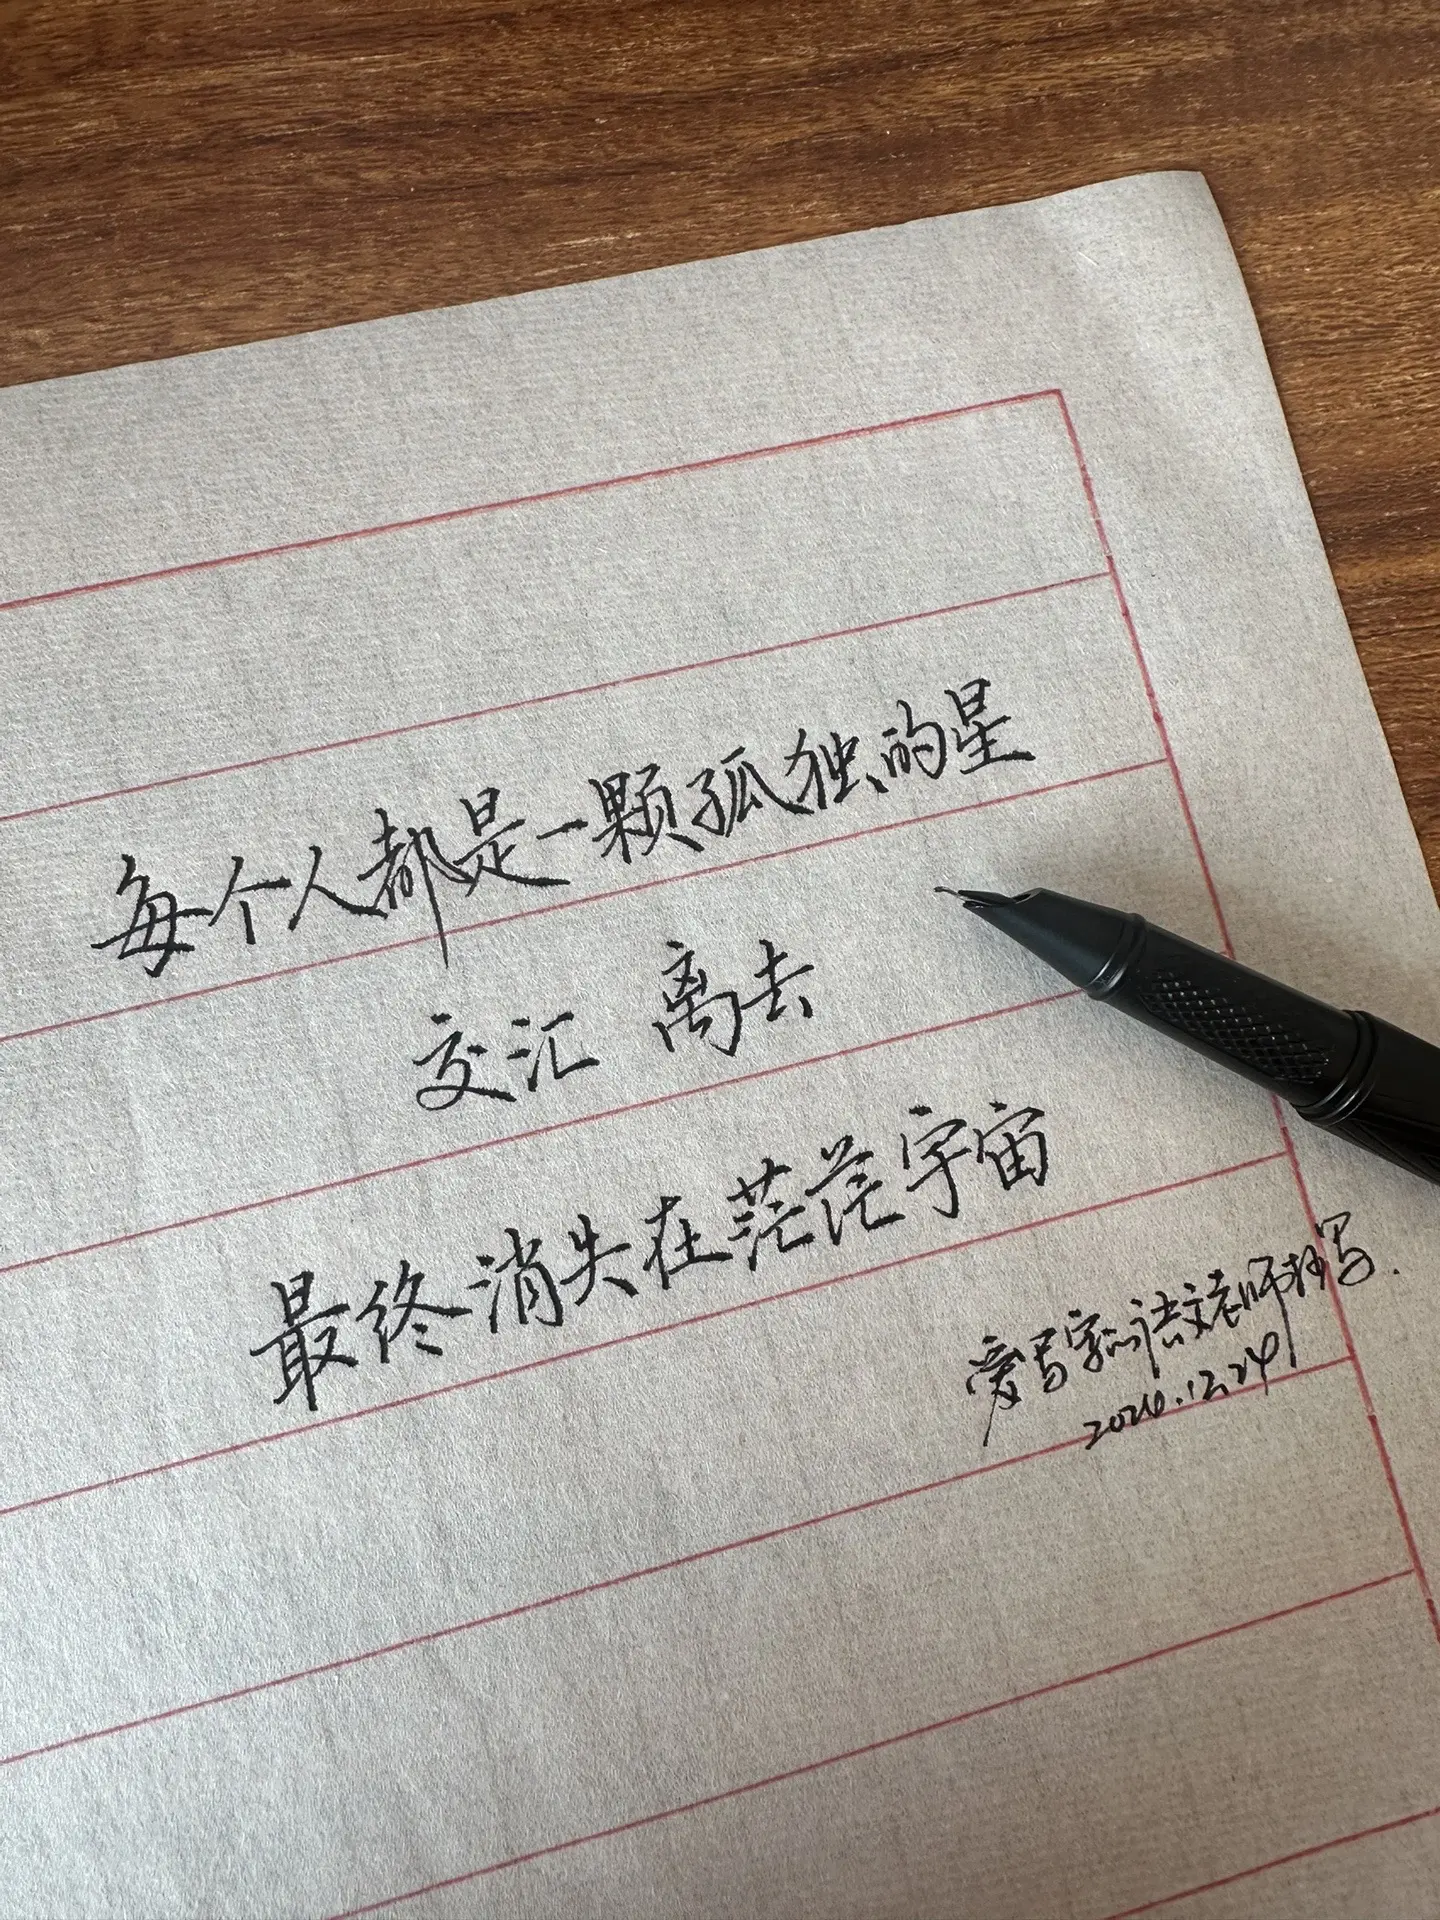 每个人都是一颗孤独的星
交汇 离去
最终消失在茫茫宇宙
爱写字的语文老师抄写.
2024.12.24